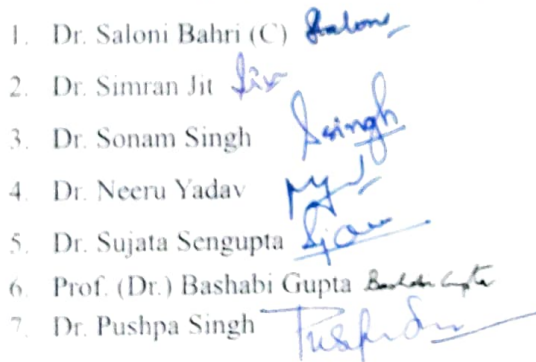 1. Dr. Saloni Bahri (C) Saloni
2. Dr. Simran Jit
3. Dr. Sonam Singh Ssingh
4. Dr. Neeru Yadav
5. Dr. Sujata Sengupta
6. Prof. (Dr.) Bashabi Gupta Bashabi Gupta
7. Dr. Pushpa Singh